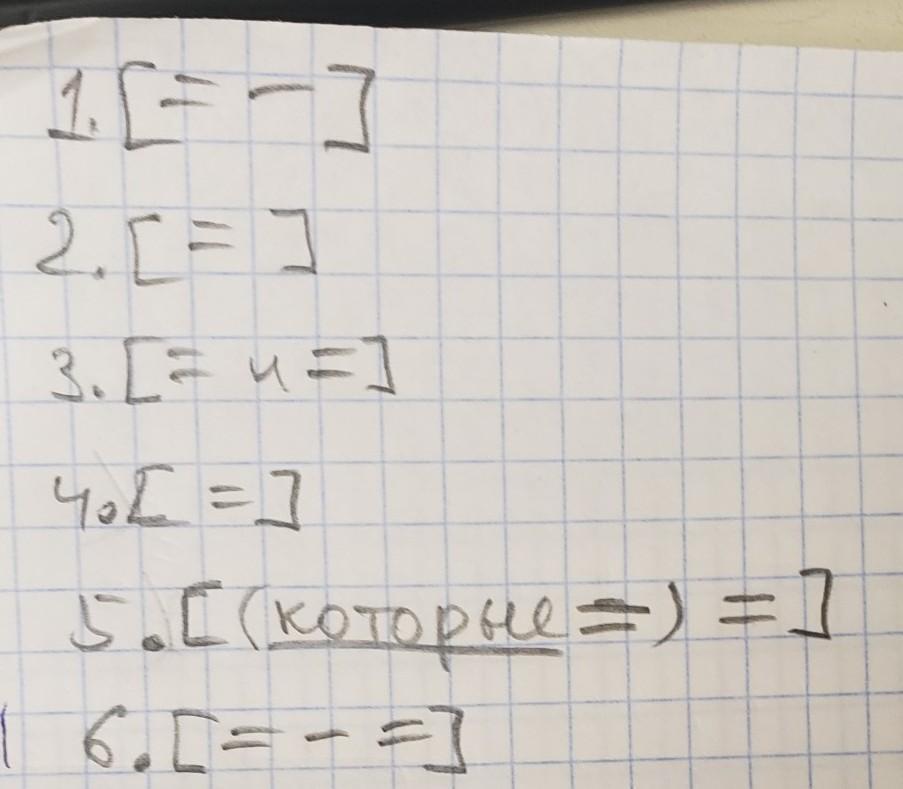 1. [= −]
2. [= ]
3. [= и =]
4. [ = ]
5. [(которые =) = ]
6. [= − =]